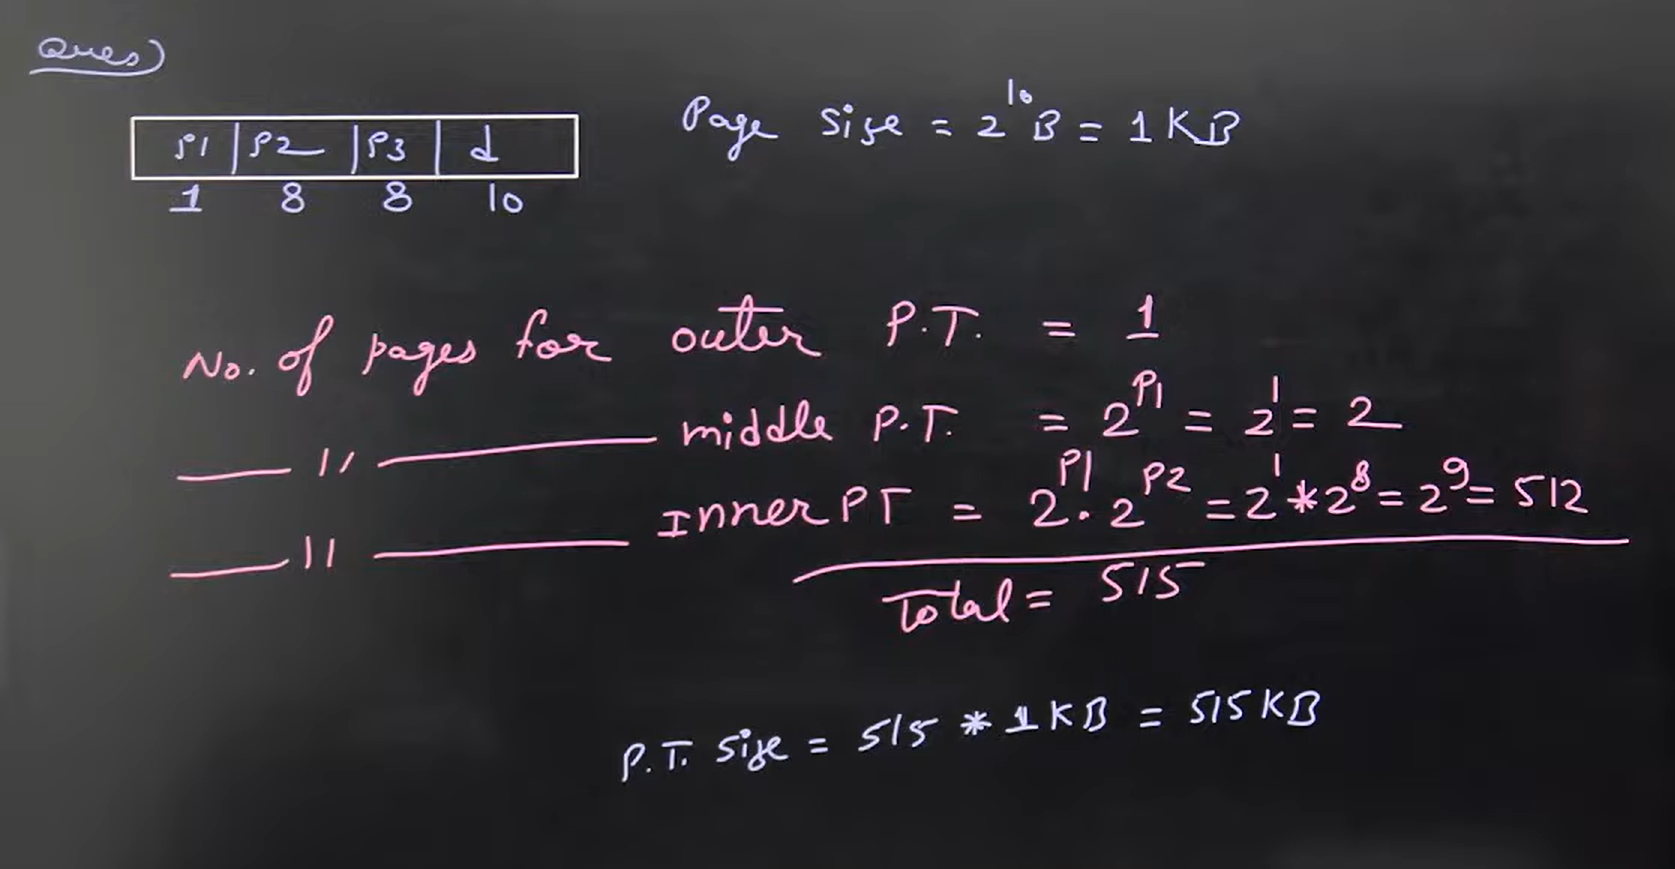 Ques)
P1 | P2 | P3 | d
1 8 8 10
Page Size = 2^10 B = 1 KB
No. of pages for outer P.T. = 1
—— 11 —— middle P.T. = 2^P1 = 2^1 = 2
—— 11 —— Inner PT = 2^P1 . 2^P2 = 2^1 * 2^8 = 2^9 = 512
Total = 515
P.T. Size = 515 * 1 KB = 515 KB